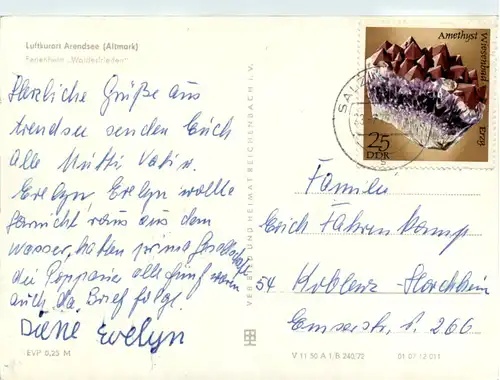 Luftkurort Arendsee (Altmark)
Ferienheim „Waldesfrieden"
Herzliche Grüße aus
Arendsee senden Euch
alle Mutti Vati u.
Evelyn Evelyn wollte
garnicht raus aus dem
Wasser, hatten prima Gesellschaft
die alle fünf waren
auch da. Brief folgt.
Evelyn
EVP 0,25 M
VEB BILD UND HEIMAT REICHENBACH I. V.
Amethyst
Wiesenbad
Erzg.
25
DDR
Familie
Erich Fahrenkamp
54 Koblenz-Horchheim
Emserstr. 266
V 11 50 A 1/B 240/72
01 07 12 011